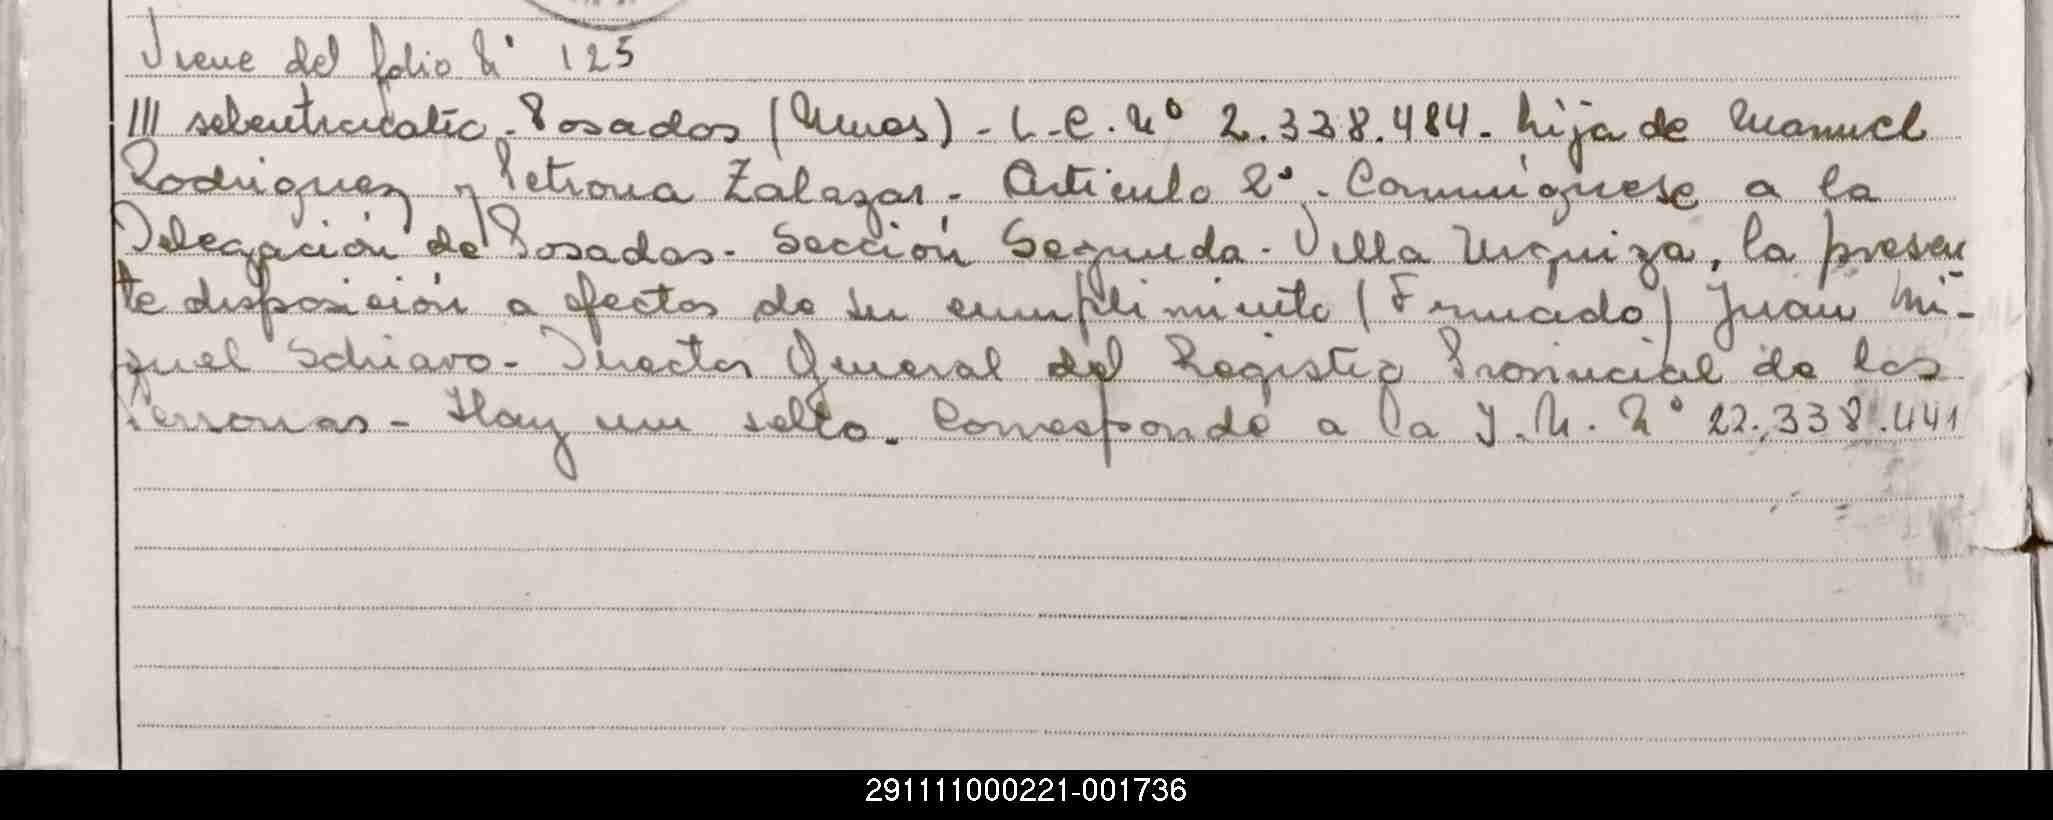 Viene del folio N° 125
III setentaicuatro. Posadas (Mnes) - L.C. N° 2.338.484. hija de Manuel
Rodriguez y Petrona Zalazar. Articulo 2°. Comuníquese a la
Delegación de Posadas. Sección Segunda. Villa Urquiza, la presen
te disposición a efectos de su cumplimiento (Firmado) Juan Mi-
guel Schiavo. Director General del Registro Provincial de las
Personas - Hay un sello. Corresponde a la I.M. N° 22.338.441
291111000221-001736